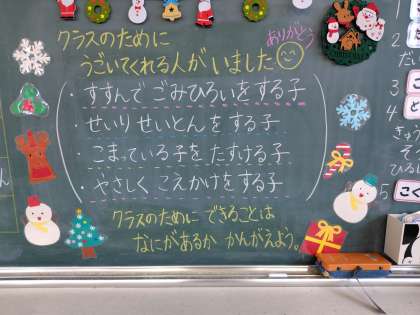 クラスのために
うごいてくれる人がいました
ありがとう
・すすんで ごみひろいをする子
・せいり せいとんをする子
・こまっている子を たすける子
・やさしく こえかけをする子
クラスのために できることは
なにがあるか かんがえよう。